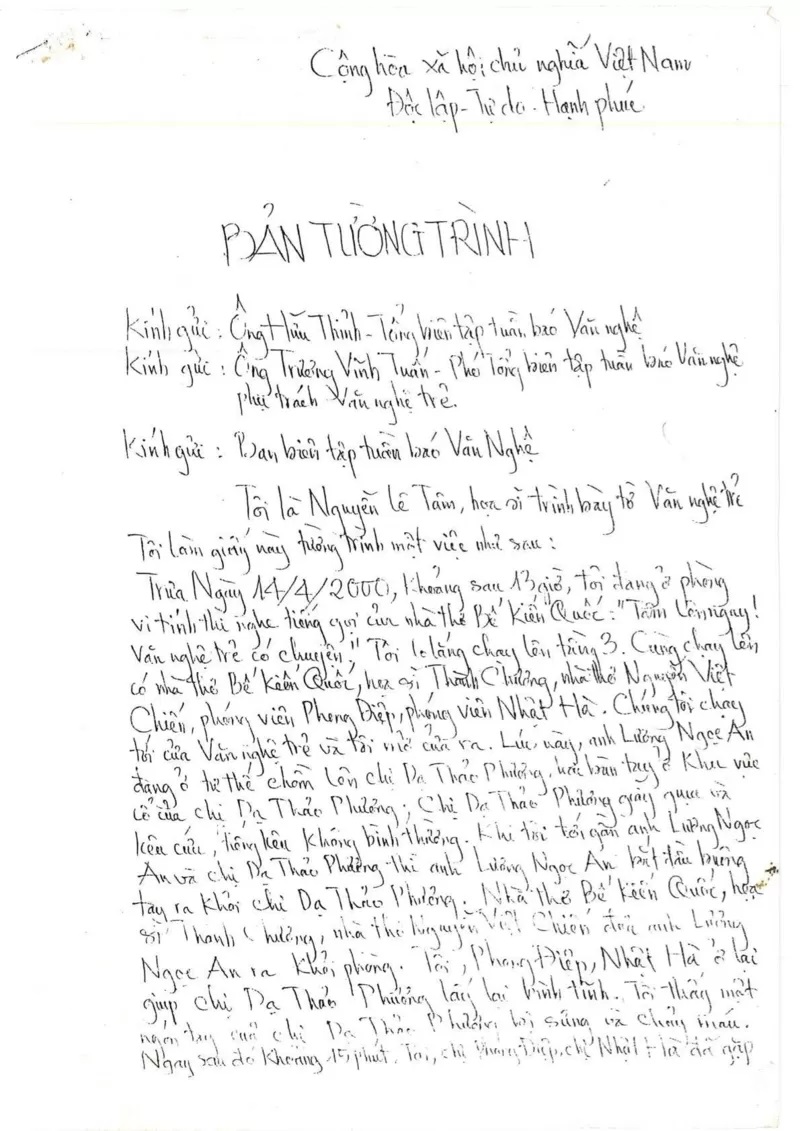 Cộng hòa xã hội chủ nghĩa Việt Nam
Độc lập - Tự do - Hạnh phúc
BẢN TƯỜNG TRÌNH
Kính gửi : Ông Hữu Thỉnh - Tổng biên tập tuần báo Văn nghệ
Kính gửi : Ông Trương Vĩnh Tuấn - Phó Tổng biên tập tuần báo Văn nghệ
phụ trách Văn nghệ trẻ.
Kính gửi : Ban biên tập tuần báo Văn Nghệ
Tôi là Nguyễn Lê Tâm, họa sĩ trình bày tờ Văn nghệ trẻ
Tôi làm giấy này tường trình một việc như sau :
Trưa Ngày 14/4/2000, Khoảng sau 13 giờ, tôi đang ở phòng
vi tính thì nghe tiếng gọi của nhà thơ Bế Kiến Quốc : "Tâm lên ngay!
Văn nghệ trẻ có chuyện," Tôi lo lắng chạy lên tầng 3. Cùng chạy lên
có nhà thơ Bế Kiến Quốc, họa sĩ Thành Chương, nhà thơ Nguyễn Việt
Chiến, phóng viên Phong Điệp, phóng viên Nhật Hà. Chúng tôi chạy
tới cửa Văn nghệ trẻ và tôi mở cửa ra. Lúc này, anh Lương Ngọc An
đang ở tư thế chồm lên chị Dạ Thảo Phương, hai bàn tay ở Khu vực
cổ của chị Dạ Thảo Phương; Chị Dạ Thảo Phương giãy giụa và
kêu cứu, tiếng kêu không bình thường. Khi tôi tới gần anh Lương Ngọc
An và chị Dạ Thảo Phương thì anh Lương Ngọc An bắt đầu buông
tay ra khỏi chị Dạ Thảo Phương. Nhà thơ Bế Kiến Quốc, họa
sĩ Thành Chương, nhà thơ Nguyễn Việt Chiến đưa anh Lương
Ngọc An ra khỏi phòng. Tôi, Phong Điệp, Nhật Hà ở lại
giúp chị Dạ Thảo Phương lấy lại bình tĩnh. Tôi thấy một
ngón tay của chị Dạ Thảo Phương bị sưng và chảy máu.
Ngay sau đó khoảng 15 phút, Tôi, chị Phong Điệp, chị Nhật Hà đã gặp